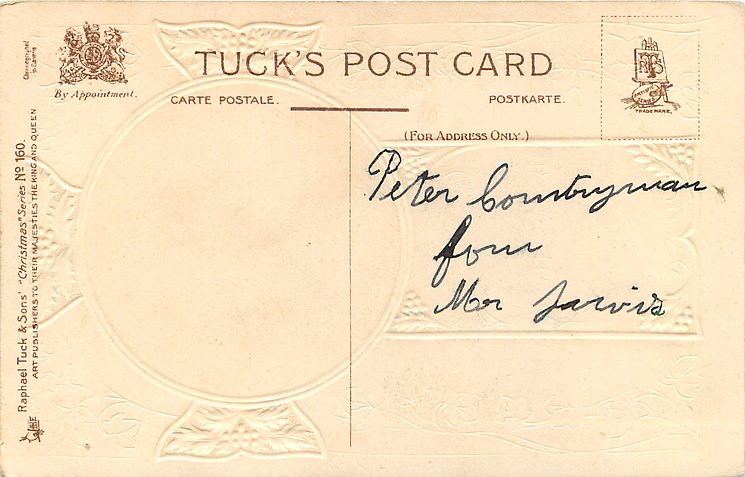 TUCK'S POST CARD
By Appointment.
CARTE POSTALE.
POSTKARTE.
(FOR ADDRESS ONLY.)
TRADE MARK.
Raphael Tuck & Sons' "Christmas" Series Nº 160.
ART PUBLISHERS TO THEIR MAJESTIES THE KING AND QUEEN
Peter Countryman
from
Mr Jarvis